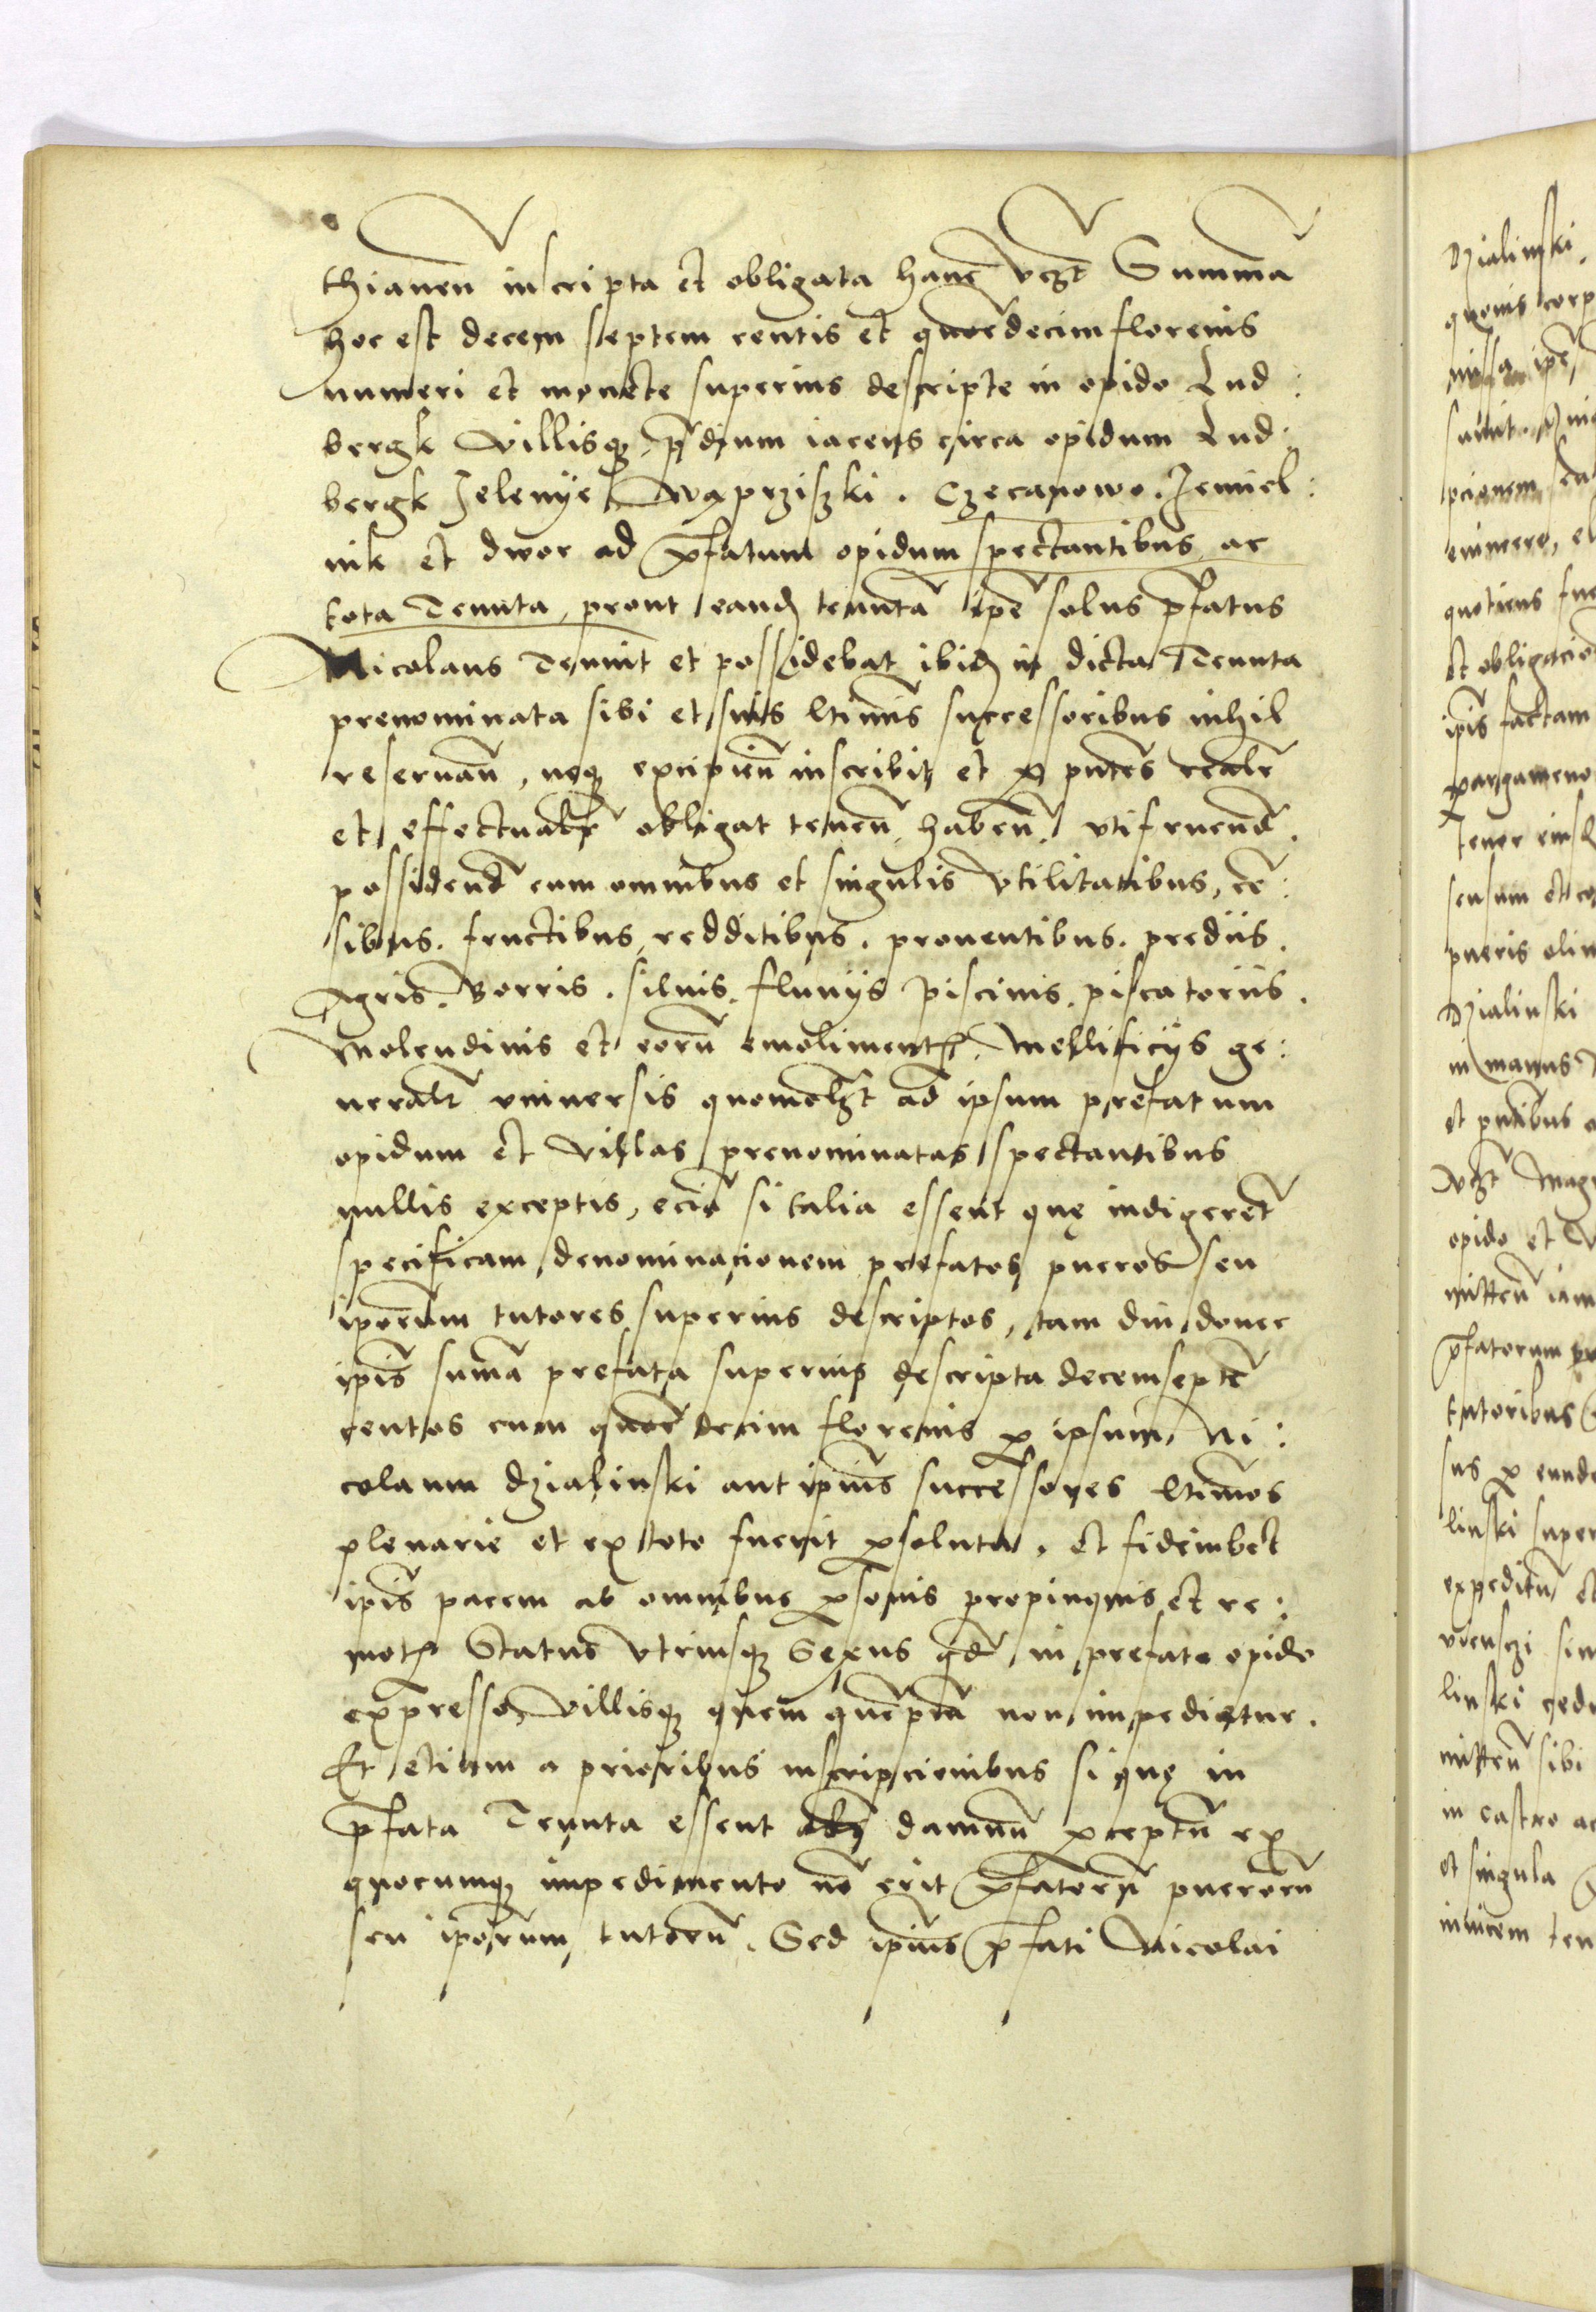 thianen inscripta et obligata hanc vczt Summa
hoc est decem septem centis et quordecim florenis
numeri et monete superius descripte in opido Lud:
bergk villisq p̄dium iacens circa opidum Lud:
bergk Jelenye Wąprziszki. Czecanowo. Jemiel:
nik et dwor ad p̄fatum opidum spectantibus ac
tota Tenuta, prout eand tenutā ip̄e solus p̄fatus
Nicolaus Tenuit et possidebat ibid in dicta Tenuta
prenominata sibi et suis ltimis successoribus nihil
reseruan̄, neq excipien̄ inscribit et p pn̄tes realr̄
et effectualr̄ obligat tenen̄ haben̄ vtifruend̄.
possidend̄ cum omnibus et singulis vtilitatibus, cē:
sibus. fructibus, redditibus. prouentibus. prediis.
Agris. Borris. siluis. fluuijs piscinis. piscatoriis.
Molendinis et eorū emoliment, Mellificijs ge:
neralr̄ vniuersis quomolzt ad ipsum prefatum
opidum et villas prenominatas spectantibus
nullis exceptis, eciā si talia essent quę indigeret̄
specificam denominacionem prefatos pueros seu
ip̄orum tutores superius descriptos, tam diu donec
ip̄is sumā prefata superius descripta decemseptē
centos cum quor decim florenis p ipsum Ni:
colaum dzialinski aut ip̄ius successores ltimos
plenarie et ex toto fuerit psoluta. Et fideiubet
ip̄is pacem ab omnibus psonis propinquis et re:
mot Status vtriusq Sexus qd̄ in prefato opido
expresso villisq quem quēpiā non impediatur.
Et etiam a prioribus inscripcionibus si quę in
p̄fata Tenuta essent damnū pceptū ex
quocumq impedimento nō erit p̄fatorū puerorū
seu ip̄orum tutorū. Sed ip̄ius p̄fati Nicolai
Dzialinski.
quouis corp
ipē
pcionem seu
eximere, el
quotiens fue
et obligacio
ip̄is factam
pargameno
tenor eius
sensum et co
pueris olim
Dzialinski
in manus
et pn̄tibus
vczt Magn
opido et v
mitten̄ iam
p̄fatorum
tutoribus
sus p eunde
linski super
expeditū et
linski cede
mitten̄ sibi
in castro ac
et singula
inuicem ten